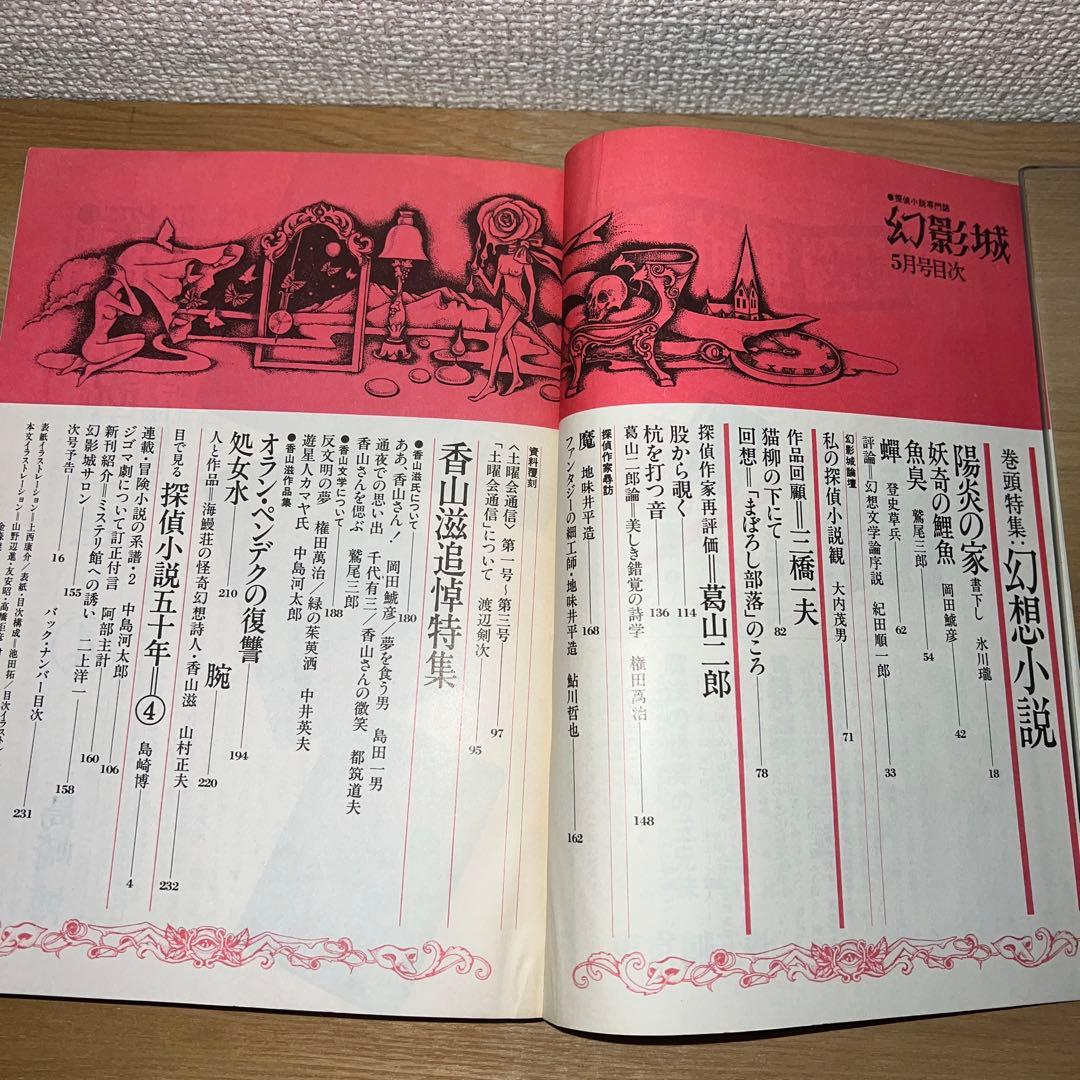 ●探偵小説専門誌
幻影城
5月号目次
巻頭特集:幻想小説
陽炎の家 書下し 氷川瓏 18
妖奇の鯉魚 岡田鯱彦 42
魚臭 鷲尾三郎 54
蟬 登史草兵 62
評論=幻想文学論序説 紀田順一郎 33
幻影城論壇
私の探偵小説観 大内茂男 71
作品回顧=三橋一夫
猫柳の下にて 82
回想=「まぼろし部落」のころ 78
探偵作家再評価=葛山二郎
股から覗く 114
杭を打つ音 136
葛山二郎論=美しき錯覚の詩学 権田萬治 148
探偵作家尋訪
魔 地味井平造 168
ファンタジーの細工師・地味井平造 鮎川哲也 162
資料覆刻
〈土曜会通信〉第一号～第三号 97
「土曜会通信」について 渡辺剣次 95
香山滋追悼特集
●香山滋氏について 180
ああ、香山さん! 岡田鯱彦/夢を食う男 島田一男
通夜での思い出 千代有三/香山さんの微笑 都筑道夫
香山さんを偲ぶ 鷲尾三郎
●香山文学について 188
反文明の夢 権田萬治/緑の茱萸酒 中井英夫
遊星人カカマヤ氏 中島河太郎
●香山滋作品集
オラン・ペンデクの復讐 194
処女水 210
腕 220
人と作品=海鰻荘の怪奇幻想詩人・香山滋 山村正夫 232
目で見る 探偵小説五十年=④ 島崎博 4
連載・冒険小説の系譜・2 中島河太郎 106
ジゴマ劇について訂正付言 阿部主計 160
新刊紹介=ミステリ館への誘い 二上洋一 158
幻影城サロン 155
次号予告 16
バック・ナンバー目次 231
表紙イラストレーション=上西康介/表紙・目次構成=池田拓/目次イラスト
本文イラストレーション=山野辺進・友安昭・高橋